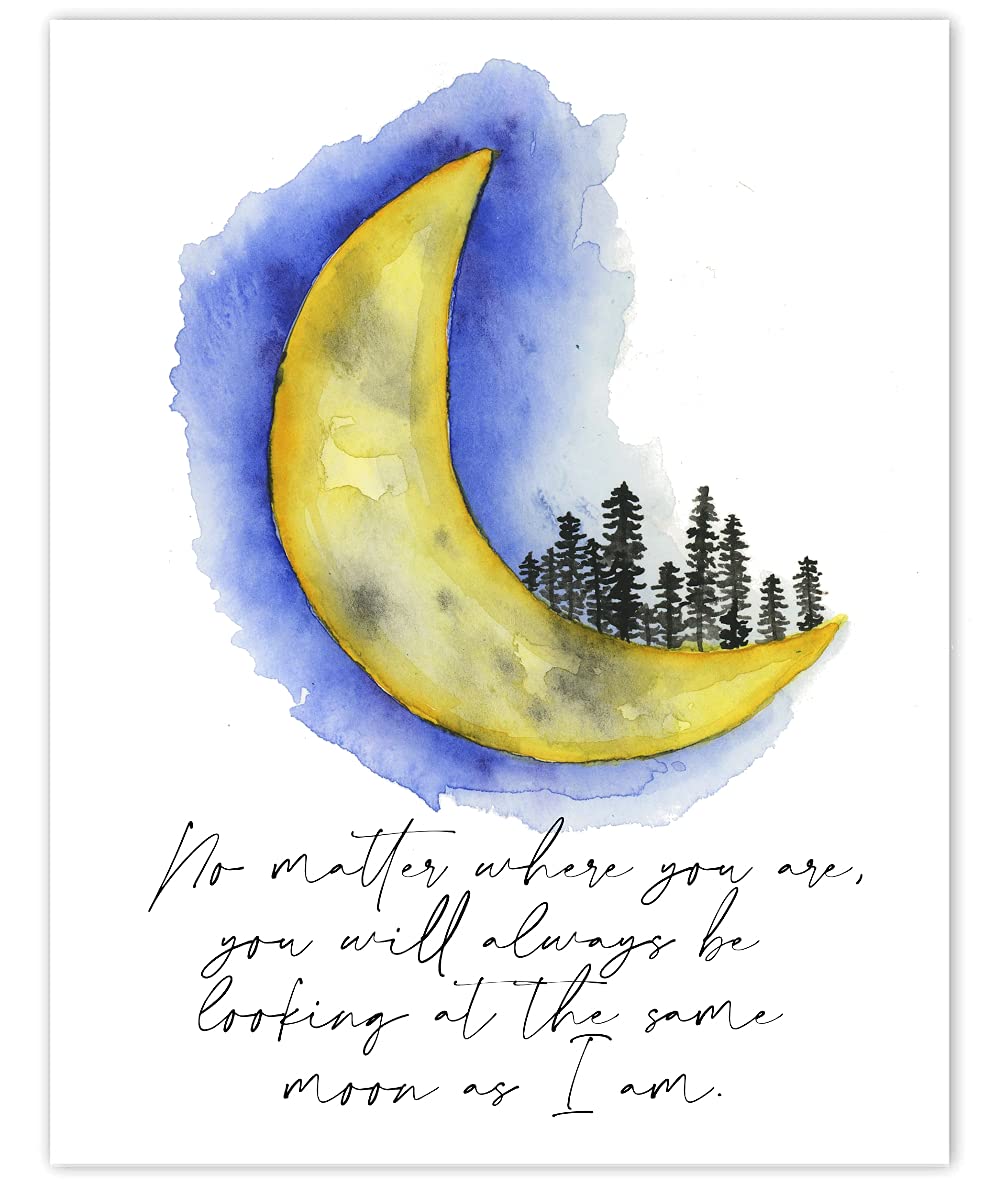 No matter where you are,
you will always be
looking at the same
moon as I am.